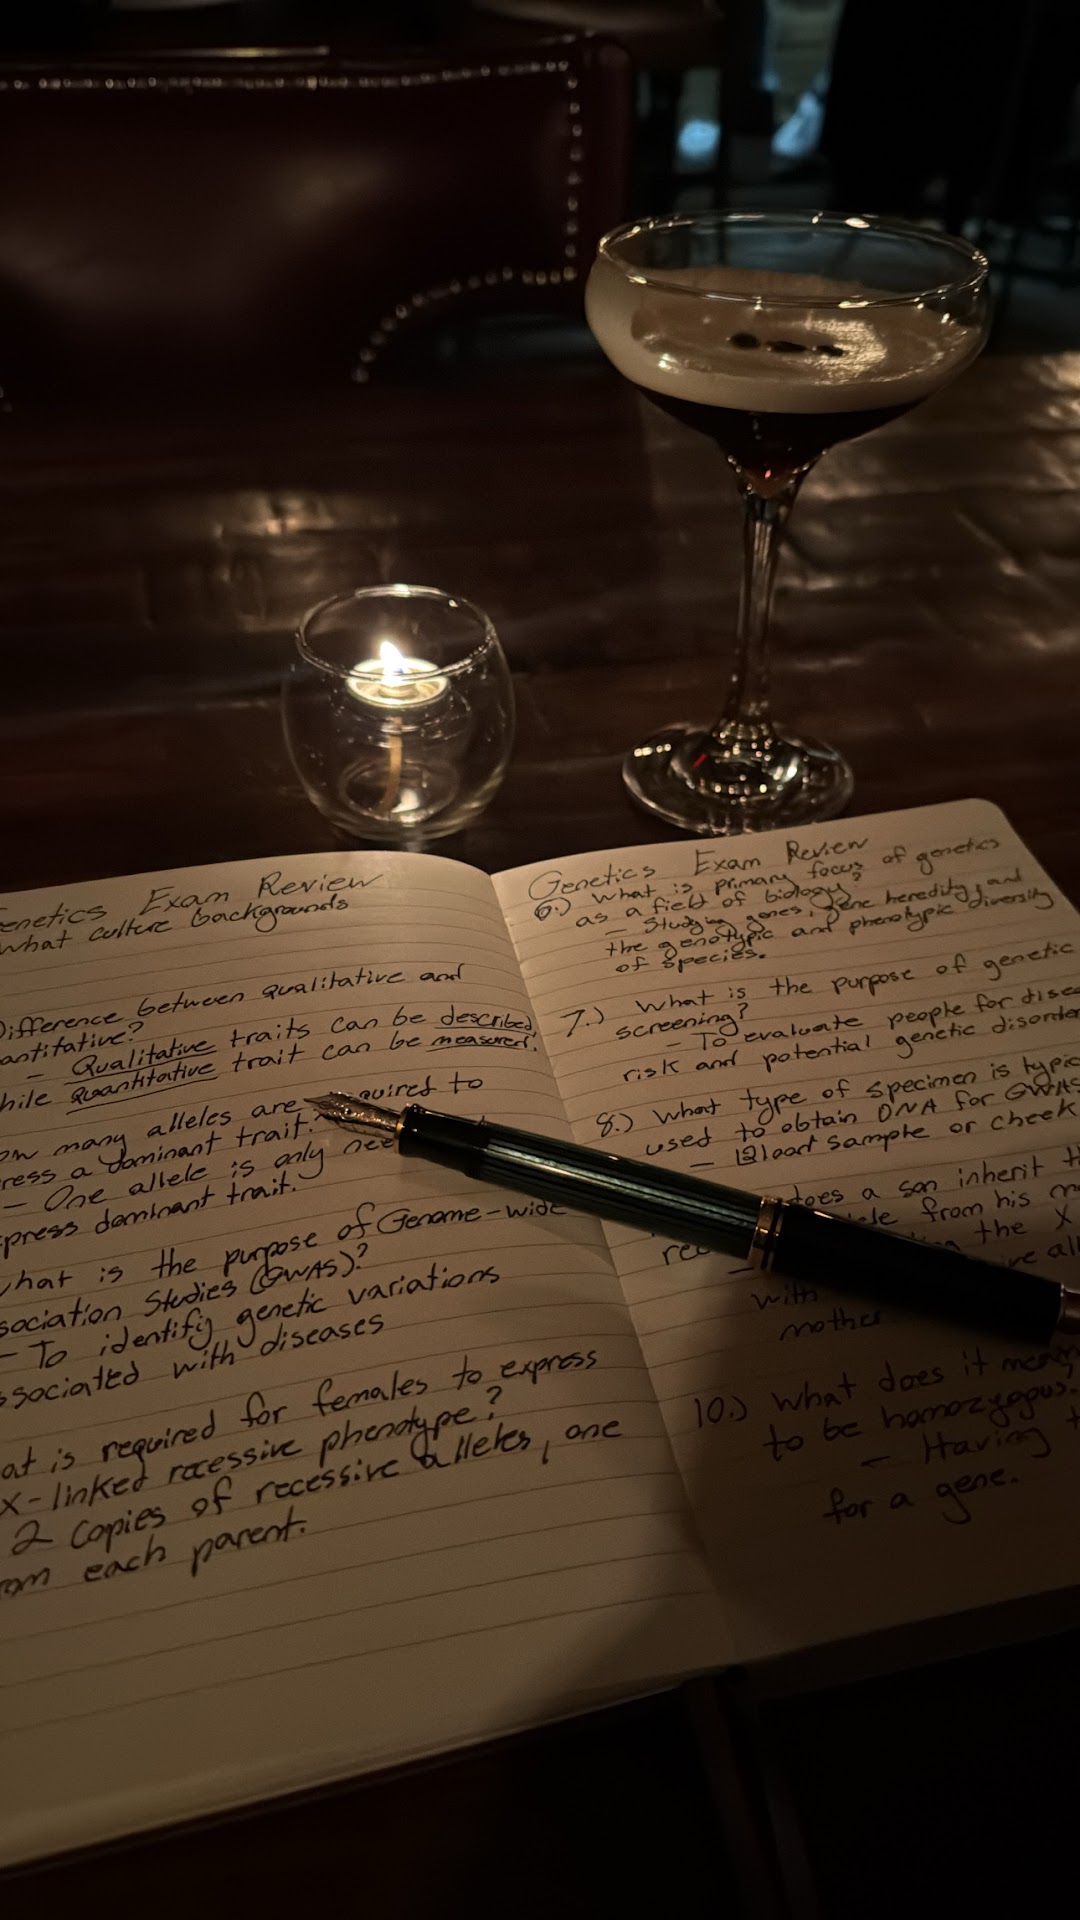 Genetics Exam Review
What culture backgrounds
Difference between qualitative and
antitative?
- Qualitative traits can be described,
hile quantitative trait can be measured.
ow many alleles are required to
ress a dominant trait?
- One allele is only nee
press dominant trait.
what is the purpose of Genome-wide
sociation Studies (GWAS)?
- To identify genetic variations
ssociated with diseases
at is required for females to express
X-linked recessive phenotype?
2 copies of recessive alleles, one
rom each parent.
Genetics Exam Review
6.) What is primary focus of genetics
as a field of biology?
- Studying genes, gene heredity, and
the genotypic and phenotypic diversity
of species.
7.) What is the purpose of genetic
screening?
- To evaluate people for disea
risk and potential genetic disorder
8.) What type of specimen is typic
used to obtain DNA for GWAS
- Blood sample or cheek
does a son inherit th
le from his mo
rec the X
ive all
with
mother
10.) What does it mean
to be homozygous.
- Having t
for a gene.